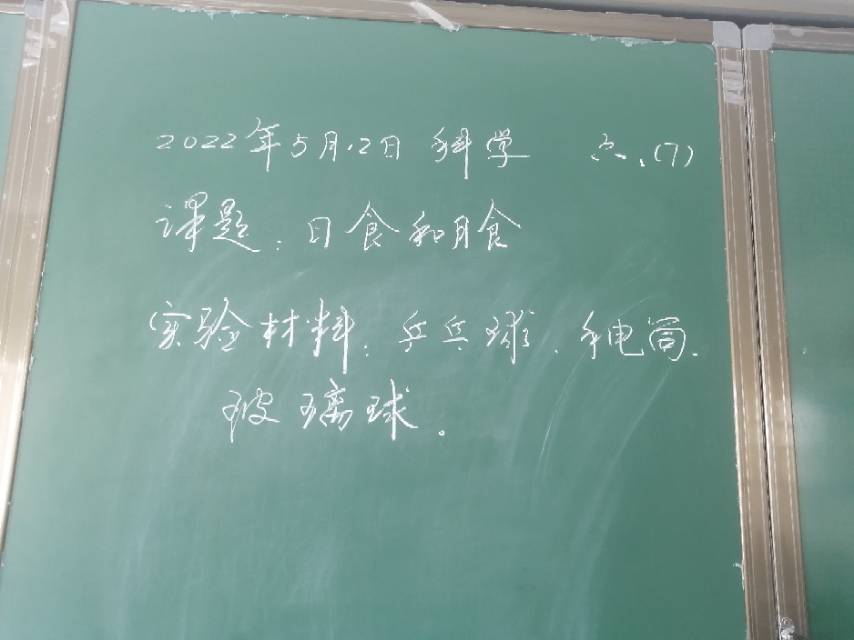 2022年5月12日 科学 六、(7)
课题：日食和月食
实验材料：乒乓球、手电筒、
玻璃球。